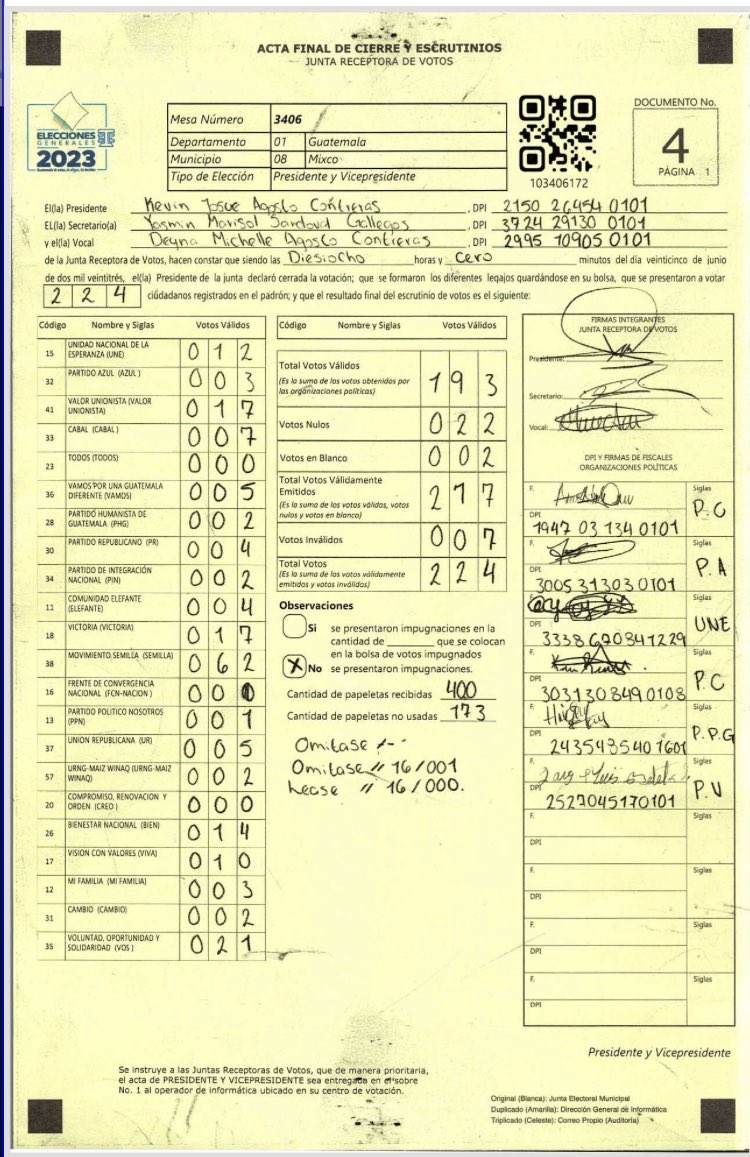 ACTA FINAL DE CIERRE Y ESCRUTINIOS
JUNTA RECEPTORA DE VOTOS
ELECCIONES
GENERALES
2023
Mesa Número 3406
Departamento 01 Guatemala
Municipio 08 Mixco
Tipo de Elección Presidente y Vicepresidente
103406172
DOCUMENTO No.
4
PÁGINA 1
El(la) Presidente Kevin Josue Agosto Contreras, DPI 2150 26454 0101
EL(la) Secretario(a) Yasmin Marisol Sandoval Gallegos, DPI 3724 29130 0101
y el(la) Vocal Deyna Michelle Agosto Contreras, DPI 2995 10905 0101
de la Junta Receptora de Votos, hacen constar que siendo las Diesiocho horas y cero minutos del día veinticinco de junio
de dos mil veintitrés, el(la) Presidente de la junta declaró cerrada la votación; que se formaron los diferentes legajos quardándose en su bolsa, que se presentaron a votar
2 2 4 ciudadanos registrados en el padrón; y que el resultado final del escrutinio de votos es el siguiente:
Código Nombre y Siglas Votos Válidos
15 UNIDAD NACIONAL DE LA ESPERANZA (UNE) 0 1 2
32 PARTIDO AZUL (AZUL ) 0 0 3
41 VALOR UNIONISTA (VALOR UNIONISTA) 0 1 7
33 CABAL (CABAL ) 0 0 7
23 TODOS (TODOS) 0 0 0
36 VAMOS POR UNA GUATEMALA DIFERENTE (VAMOS) 0 0 5
28 PARTIDO HUMANISTA DE GUATEMALA (PHG) 0 0 2
30 PARTIDO REPUBLICANO (PR) 0 0 4
34 PARTIDO DE INTEGRACIÓN NACIONAL (PIN) 0 0 2
11 COMUNIDAD ELEFANTE (ELEFANTE) 0 0 4
18 VICTORIA (VICTORIA) 0 1 7
38 MOVIMIENTO SEMILLA (SEMILLA) 0 6 2
16 FRENTE DE CONVERGENCIA NACIONAL (FCN-NACION ) 0 0
13 PARTIDO POLITICO NOSOTROS (PPN) 0 0 1
37 UNION REPUBLICANA (UR) 0 0 5
57 URNG-MAIZ WINAQ (URNG-MAIZ WINAQ) 0 0 2
20 COMPROMISO, RENOVACION Y ORDEN (CREO ) 0 0 0
26 BIENESTAR NACIONAL (BIEN) 0 1 4
17 VISION CON VALORES (VIVA) 0 1 0
12 MI FAMILIA (MI FAMILIA) 0 0 3
31 CAMBIO (CAMBIO) 0 0 2
35 VOLUNTAD, OPORTUNIDAD Y SOLIDARIDAD (VOS ) 0 2 1
Código Nombre y Siglas Votos Válidos
Total Votos Válidos 1 9 3
(Es la suma de los votos obtenidos por
las organizaciones políticas)
Votos Nulos 0 2 2
Votos en Blanco 0 0 2
Total Votos Válidamente Emitidos 2 1 7
(Es la suma de los votos válidos, votos
nulos y votos en blanco)
Votos Inválidos 0 0 7
Total Votos 2 2 4
(Es la suma de los votos válidamente
emitidos y votos inválidos)
Observaciones
Si se presentaron impugnaciones en la
cantidad de que se colocan
en la bolsa de votos impugnados
X No se presentaron impugnaciones.
Cantidad de papeletas recibidas 400
Cantidad de papeletas no usadas 173
Omitase
Omitase // 16/001
Lease // 16/000.
FIRMAS INTEGRANTES
JUNTA RECEPTORA DE VOTOS
Presidente:
Secretario:
Vocal:
DPI Y FIRMAS DE FISCALES
ORGANIZACIONES POLÍTICAS
F. Siglas P.C
DPI 1947 03 134 0101
F. Siglas P.A
DPI 3005 31303 0101
F. Siglas UNE
DPI 3338 670841229
F. Siglas P.C
DPI 303130849 0108
F. Siglas P.P.G
DPI 243543540 1601
F. Siglas P.V
DPI 2527045170101
F. Siglas
DPI
F. Siglas
DPI
F. Siglas
DPI
F. Siglas
DPI
Presidente y Vicepresidente
Se instruye a las Juntas Receptoras de Votos, que de manera prioritaria,
el acta de PRESIDENTE Y VICEPRESIDENTE sea entregada en el sobre
No. 1 al operador de informática ubicado en su centro de votación.
Original (Blanca): Junta Electoral Municipal
Duplicado (Amarilla): Dirección General de Informática
Triplicado (Celeste): Correo Propio (Auditoría)